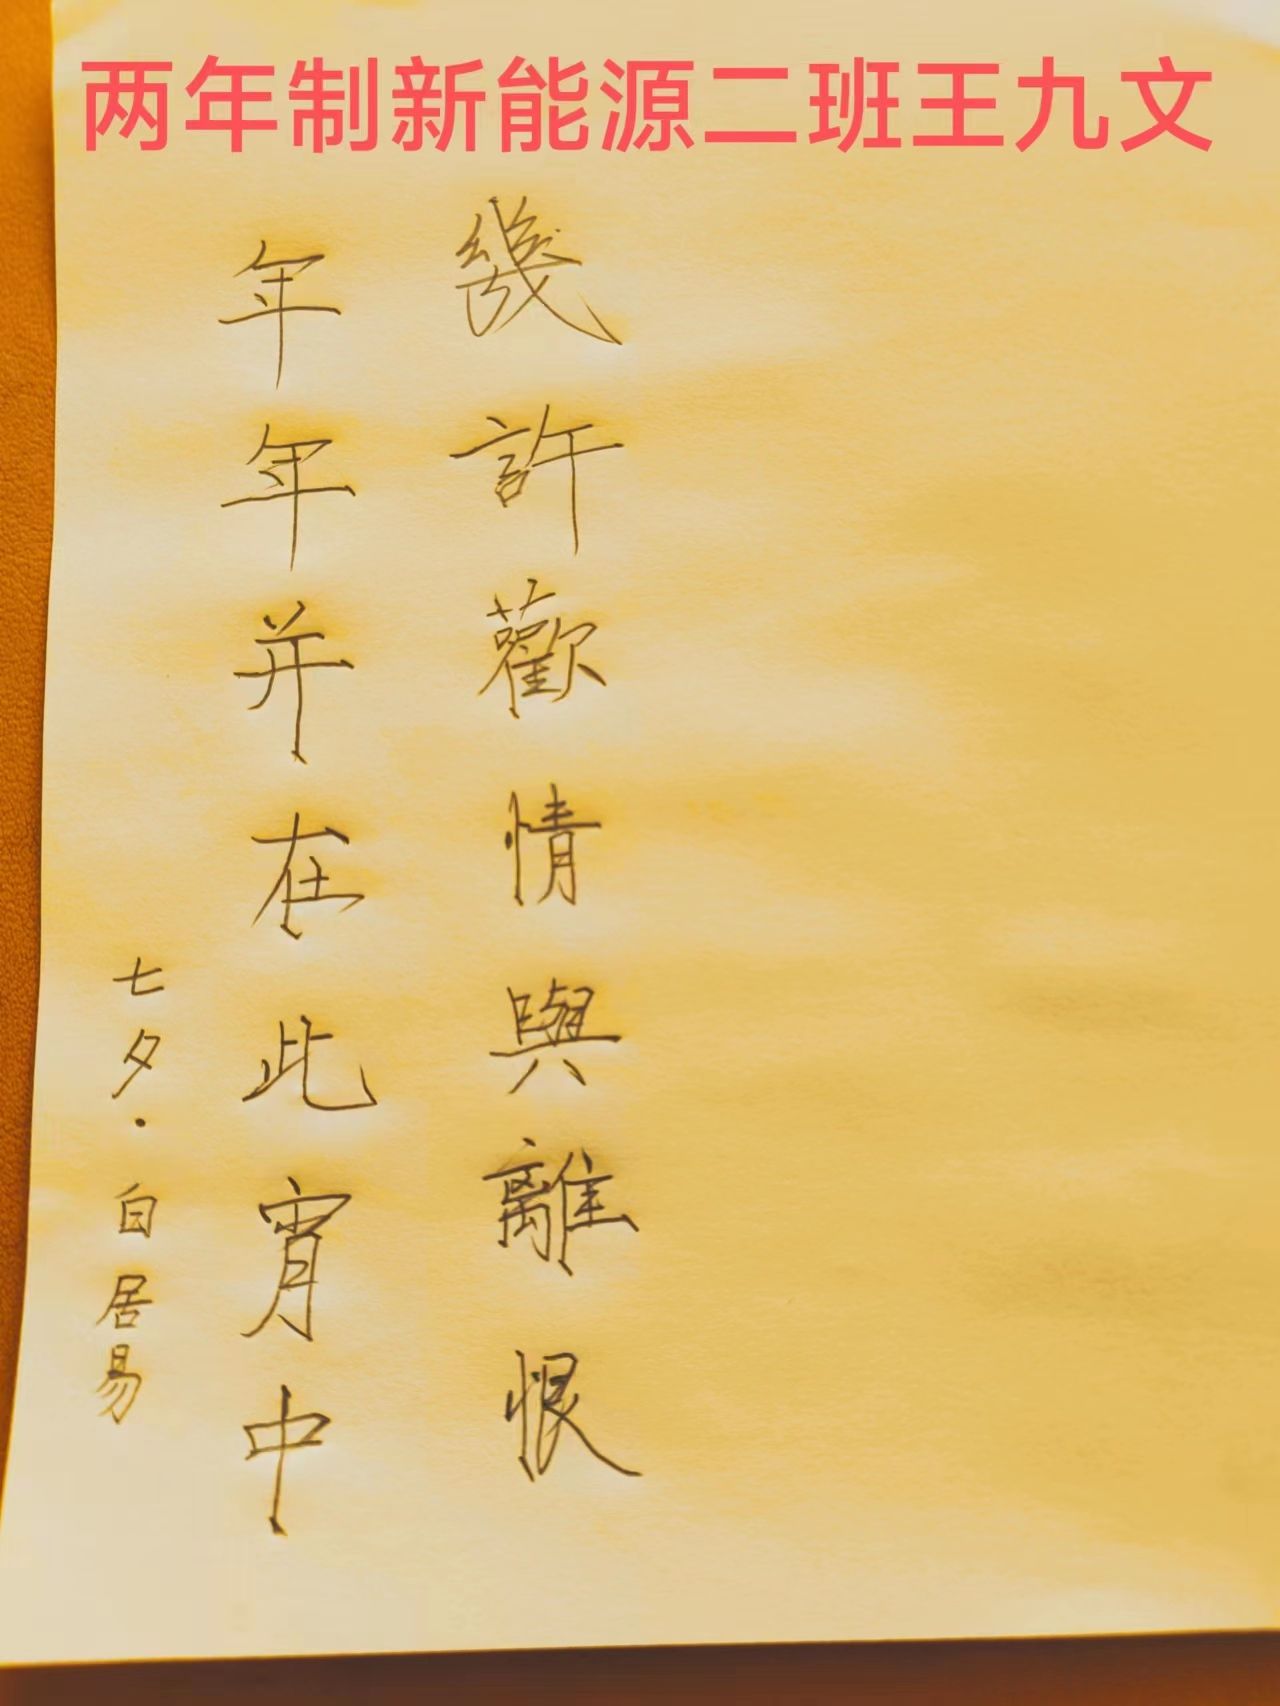 两年制新能源二班王九文
幾許歡情與離恨
年年并在此宵中
七夕·白居易